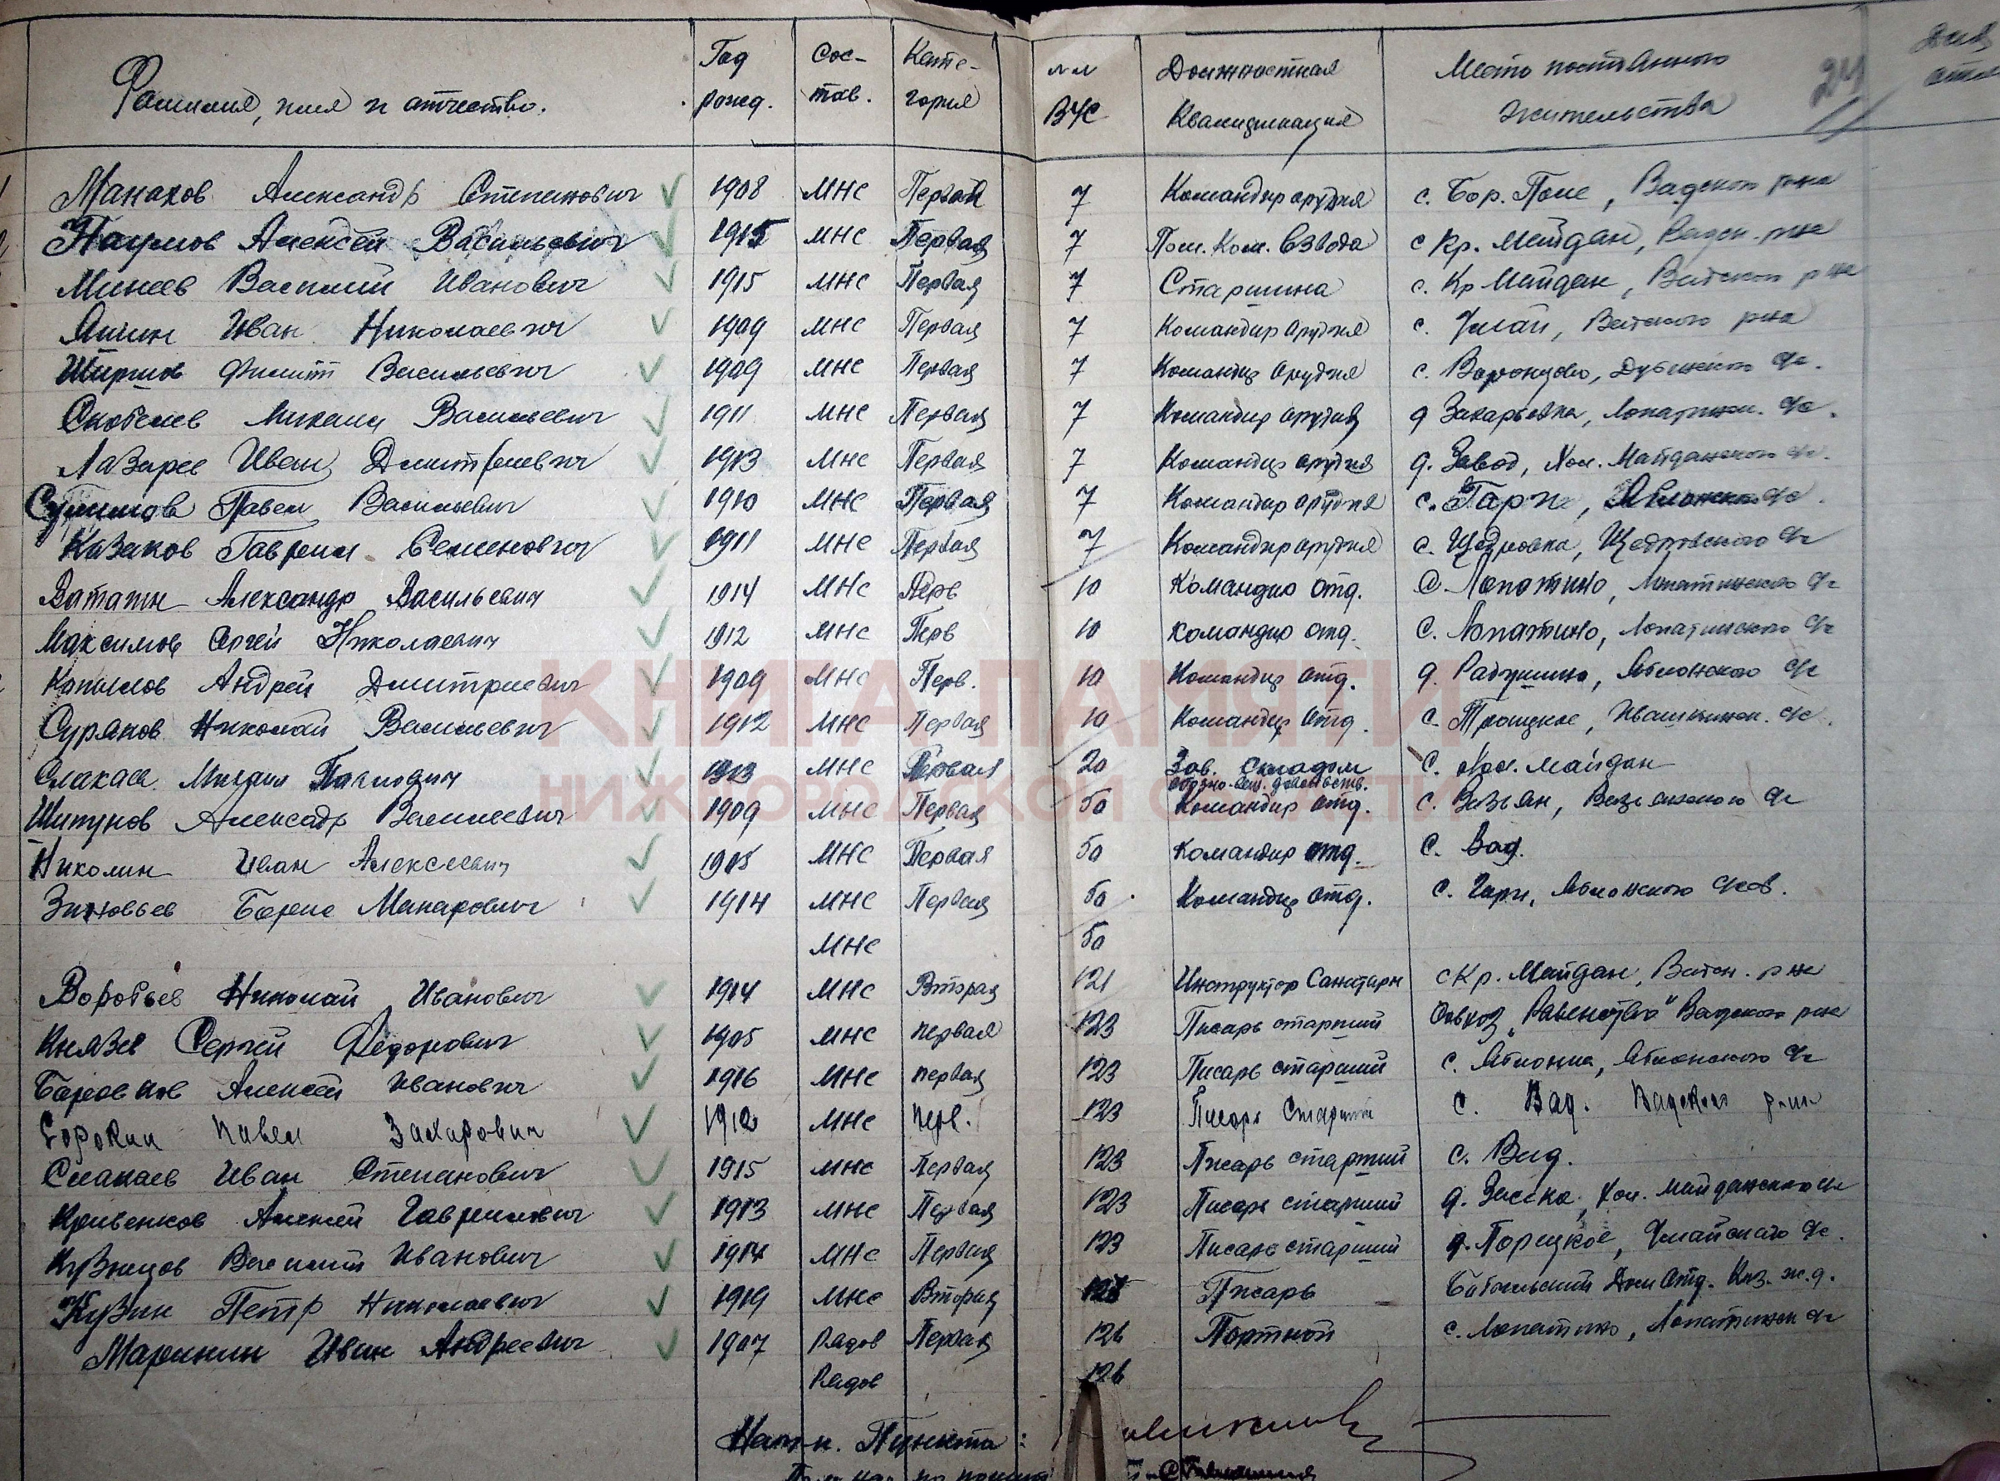 Фамилия, имя и отчество. Год рожд. Сос-тав. Кате-гория №№ ВУС Должностная Квалификация Место постоянного жительства 24
Манахов Александр Степанович 1908 МНС Первая 7 Командир орудия с. Бор. Поле, Вадского р-на
Наумов Алексей Васильевич 1915 МНС Первая 7 Пом. Ком. Взвода с Кр. Майдан, Вадск. р-на
Минеев Василий Иванович 1915 МНС Первая 7 Старшина с. Кр Майдан, Вадского р-на
Яшин Иван Николаевич 1909 МНС Первая 7 Командир орудия с. Умай, Вадского р-на
Ширшов Филипп Васильевич 1909 МНС Первая 7 Командир орудия с. Воронцово, Дубенского с/с.
Скобелев Михаил Васильевич 1911 МНС Первая 7 Командир орудия д Захарьевка, Лопатинск. с/с.
Лазарев Иван Дмитриевич 1913 МНС Первая 7 Командир орудия д. Завод, Хол. Майданского с/с.
Павел Васильевич 1910 МНС Первая 7 Командир орудия с. Гари, Яблонского с/с.
Казаков Гаврил Семенович 1911 МНС Первая 7 Командир орудия с. Щедровка, Щедровского с/с
Ватагин Александр Васильевич 1914 МНС Перв 10 Командир отд. с. Лопатино, Лопатинского с/с
Максимов Сергей Николаевич 1912 МНС Перв 10 командир отд. с. Лопатино, Лопатинского с/с
Копылов Андрей Дмитриевич 1909 МНС Перв. 10 Командир отд. д. Радушино, Яблонского с/с
Суряков Николай Васильевич 1912 МНС Первая 10 Командир отд. с. Троицкое, Ивашкинск. с/с.
Слакаев Михаил Павлович 1913 МНС Первая 20 Зав. складом с. Хол. майдан
обозно-вещ. довольств.
Шипунов Александр Васильевич 1909 МНС Первая 50 Командир отд. с. Вазьян, Вазьянского с/с
Николин Иван Алексеевич 1905 МНС Первая 50 командир отд. с. Вад.
Зиновьев Борис Макарович 1914 МНС Первая 50 Командир отд. с. Гари, Яблонского с/сов.
МНС 50
Воробьев Николай Иванович 1914 МНС Вторая 121 Инструктор Санитарн с Кр. Майдан, Вадск. р-на
Князев Сергей Федорович 1905 МНС первая 123 Писарь старший Совхоз „Равенство" Вадского р-на
Боровков Алексей Иванович 1916 МНС первая 123 Писарь старший с. Яблонка, Яблонского с/с
Сорокин Павел Захарович 1912 МНС перв. 123 Писарь Старший с. Вад. Вадского р-на
Слакаев Иван Степанович 1915 МНС Первая 123 Писарь старший с. Вад.
Кривенков Алексей Гаврилович 1913 МНС Первая 123 Писарь старший д. Засека, Хол. майданского с/с
Кузнецов Василий Иванович 1914 МНС Первая 123 Писарь старший д. Порецкое, Умайского с/с.
Кузин Петр Николаевич 1919 МНС Вторая Писарь Дом отд. Каз. ж. д.
Маринин Иван Андреевич 1907 Рядов Первая 126 Портной с. Лопатино, Лопатинск с/с
Рядов 126
Нач-к. Пункта:
КНИГА ПАМЯТИ
НИЖЕГОРОДСКОЙ ОБЛАСТИ